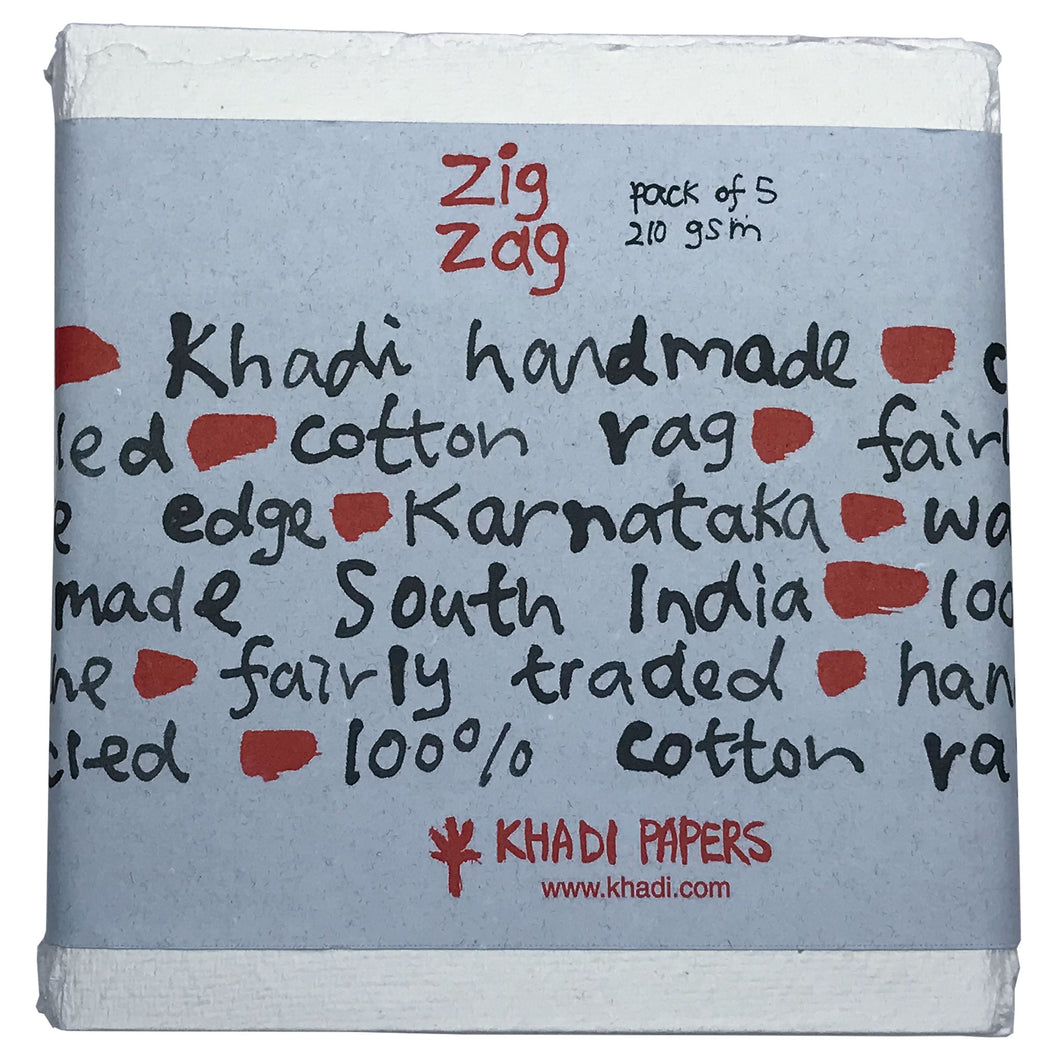 Zig
Zag
pack of 5
210 gsm
Khadi handmade
cotton rag
edge Karnataka
made South India 100
fairly traded
100% cotton
KHADI PAPERS
www.khadi.com